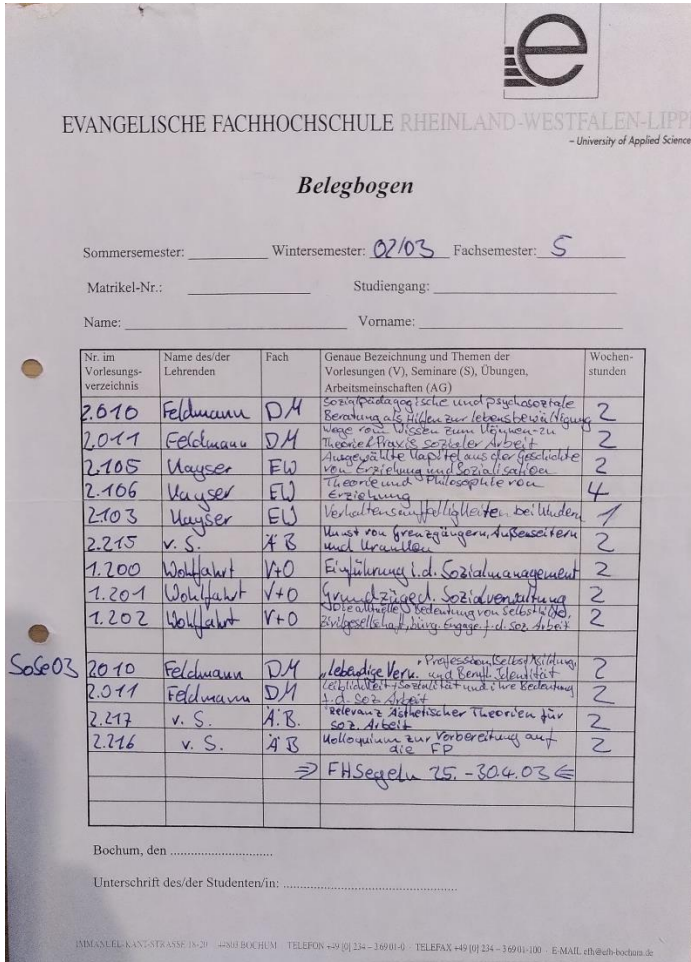 e
EVANGELISCHE FACHHOCHSCHULE RHEINLAND-WESTFALEN-LIPP
– University of Applied Science
Belegbogen
Sommersemester: Wintersemester: 02/03 Fachsemester: 5
Matrikel-Nr.: Studiengang:
Name: Vorname:
Nr. im Vorlesungs-verzeichnis Name des/der Lehrenden Fach Genaue Bezeichnung und Themen der Vorlesungen (V), Seminare (S), Übungen, Arbeitsmeinschaften (AG) Wochen-stunden
2.010 Feldmann DM Sozialpädagogische und psychosoziale Beratung als Hilfen zur Lebensbewältigung 2
2.011 Feldmann DM Wege vom Wissen zum Können - zu Theorie/Praxis sozialer Arbeit 2
2.105 Kayser EW Ausgewählte Kapitel aus der Geschichte von Erziehung und Sozialisation 2
2.106 Kayser EW Theorie und Philosophie von Erziehung 4
2.103 Kayser EW Verhaltensauffälligkeiten bei Kindern 1
2.215 v. S. ÄB Kunst von Grenzgängern, Außenseitern und Kranken 2
1.200 Wohlfahrt V+O Einführung i. d. Sozialmanagement 2
1.201 Wohlfahrt V+O Grundzüge d. Sozialverwaltung 2
1.202 Wohlfahrt V+O Die aktuelle Bedeutung von Selbsthilfe, Zivilgesellschaft, bürg. Engage. f. d. soz. Arbeit 2
SoSe03 2010 Feldmann DM „Lebendige Profession, Selbst, Bildung, und Berufl. Identität 2
2.011 Feldmann DM Leiblichkeit + Sozialität und ihre Bedeutung f. d. soz. Arbeit 2
2.217 v. S. Ä.B. Relevanz Ästhetischer Theorien für soz. Arbeit 2
2.216 v. S. ÄB Kolloquium zur Vorbereitung auf die FP 2
⇒ FHSegeln 25. - 30.4.03 ⇐
Bochum, den ............................
Unterschrift des/der Studenten/in: ................................................
IMMANUEL-KANT-STRASSE 18-20 44803 BOCHUM TELEFON +49 [0] 234 – 3 69 01-0 TELEFAX +49 [0] 234 – 3 69 01-100 E-MAIL efh@efh-bochum.de